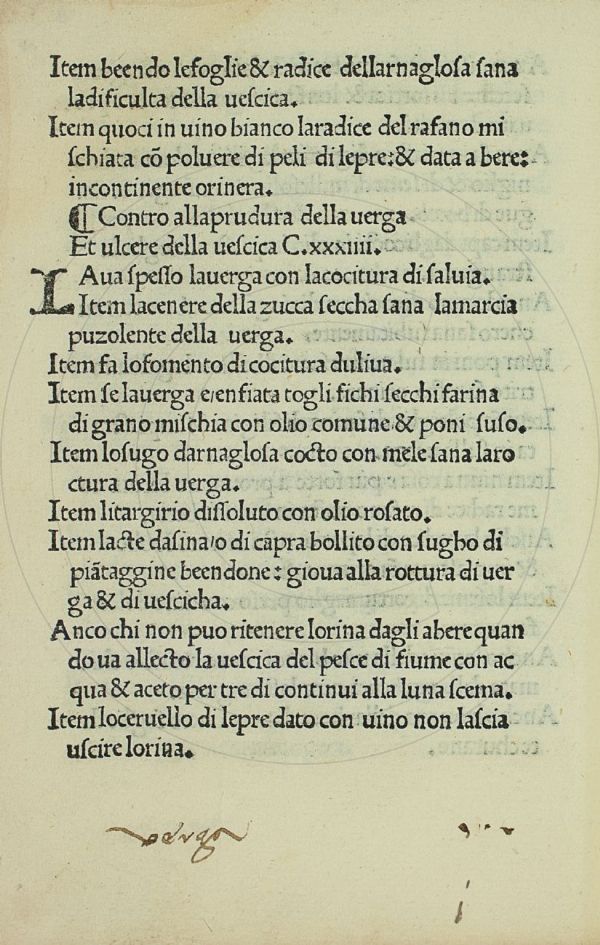 Item beendo lefoglie & radice dellarnagloſa ſana
ladificulta della ueſcica.
Item quoci in uino bianco laradice del rafano mi
ſchiata cõ poluere di peli di lepre: & data a bere:
incontinente orinera.
¶ Contro allaprudura della uerga
Et ulcere della ueſcica C.xxxiiii.
LAua ſpeſſo lauerga con lacocitura di ſaluia.
Item lacenere della zucca ſeccha ſana lamarcia
puzolente della uerga.
Item fa lofomento di cocitura duliua.
Item ſe lauerga e/enfiata togli fichi ſecchi farina
di grano miſchia con olio comune & poni ſuſo.
Item loſugo darnagloſa cocto con mele ſana laro
ctura della uerga.
Item litargirio diſſoluto con olio roſato.
Item lacte daſina/o di capra bollito con ſugho di
piãtaggine beendone: gioua alla rottura di uer
ga & di ueſcicha.
Anco chi non puo ritenere lorina dagli abere quan
do ua allecto la ueſcica del peſce di fiume con ac
qua & aceto per tre di continui alla luna ſcema.
Item loceruello di lepre dato con uino non laſcia
uſcire lorina.
verga